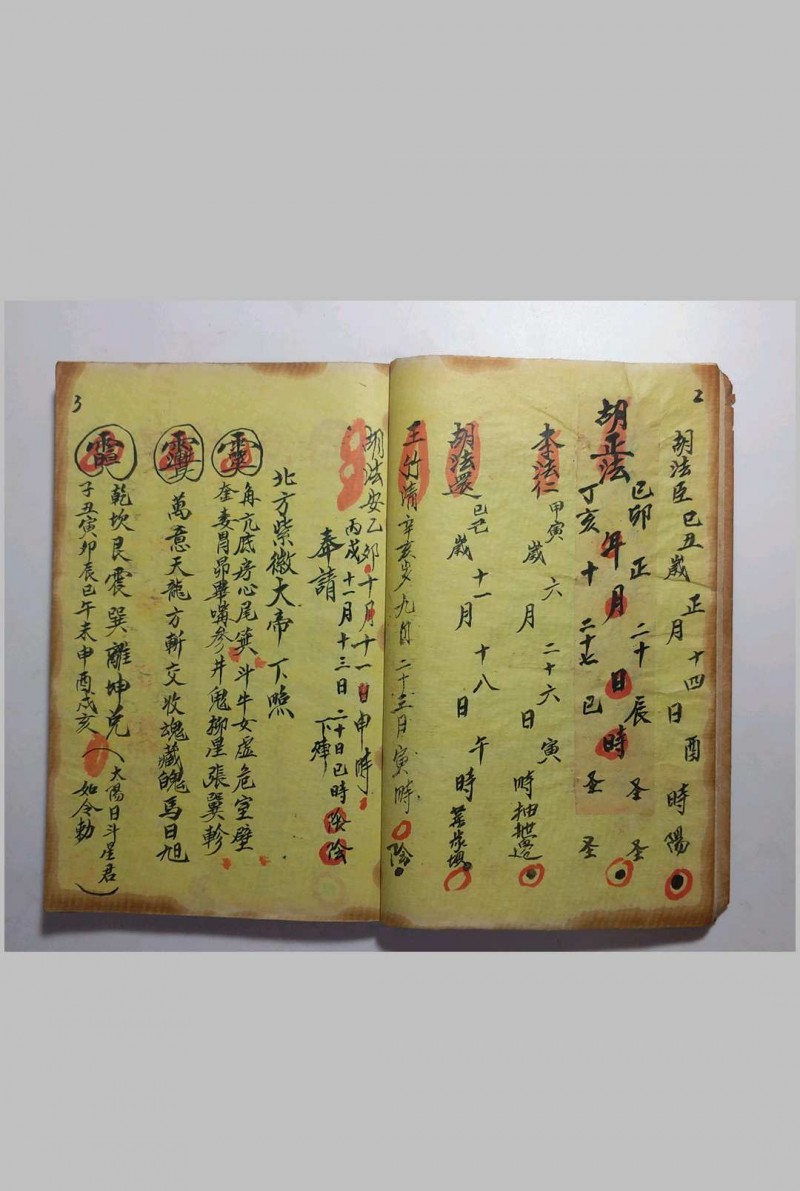 2
胡法臣己丑歲正月十四日酉時陽
己卯正二十辰圣圣
胡正法年月日時
丁亥十二十七巳圣圣
李法仁甲寅歲六月二十六日寅時
胡法眾己巳歲十一月十八日午時
王竹清辛亥岁九月二十三日寅時陰
3
胡法安乙卯十月十一日申時陰
丙戍十一月十三日二十日巳時陰
奉請
下降
北方紫微大帝下照
角亢底房心尾箕斗牛女虛危室壁
奎婁胃昴畢嘴參井鬼柳星張翼軫
萬意天龍方斬交收魂藏魄馬日旭
乾坎艮震巽離坤兌（太陽日斗星君）
子丑寅卯辰巳午未申酉戍亥如令勅